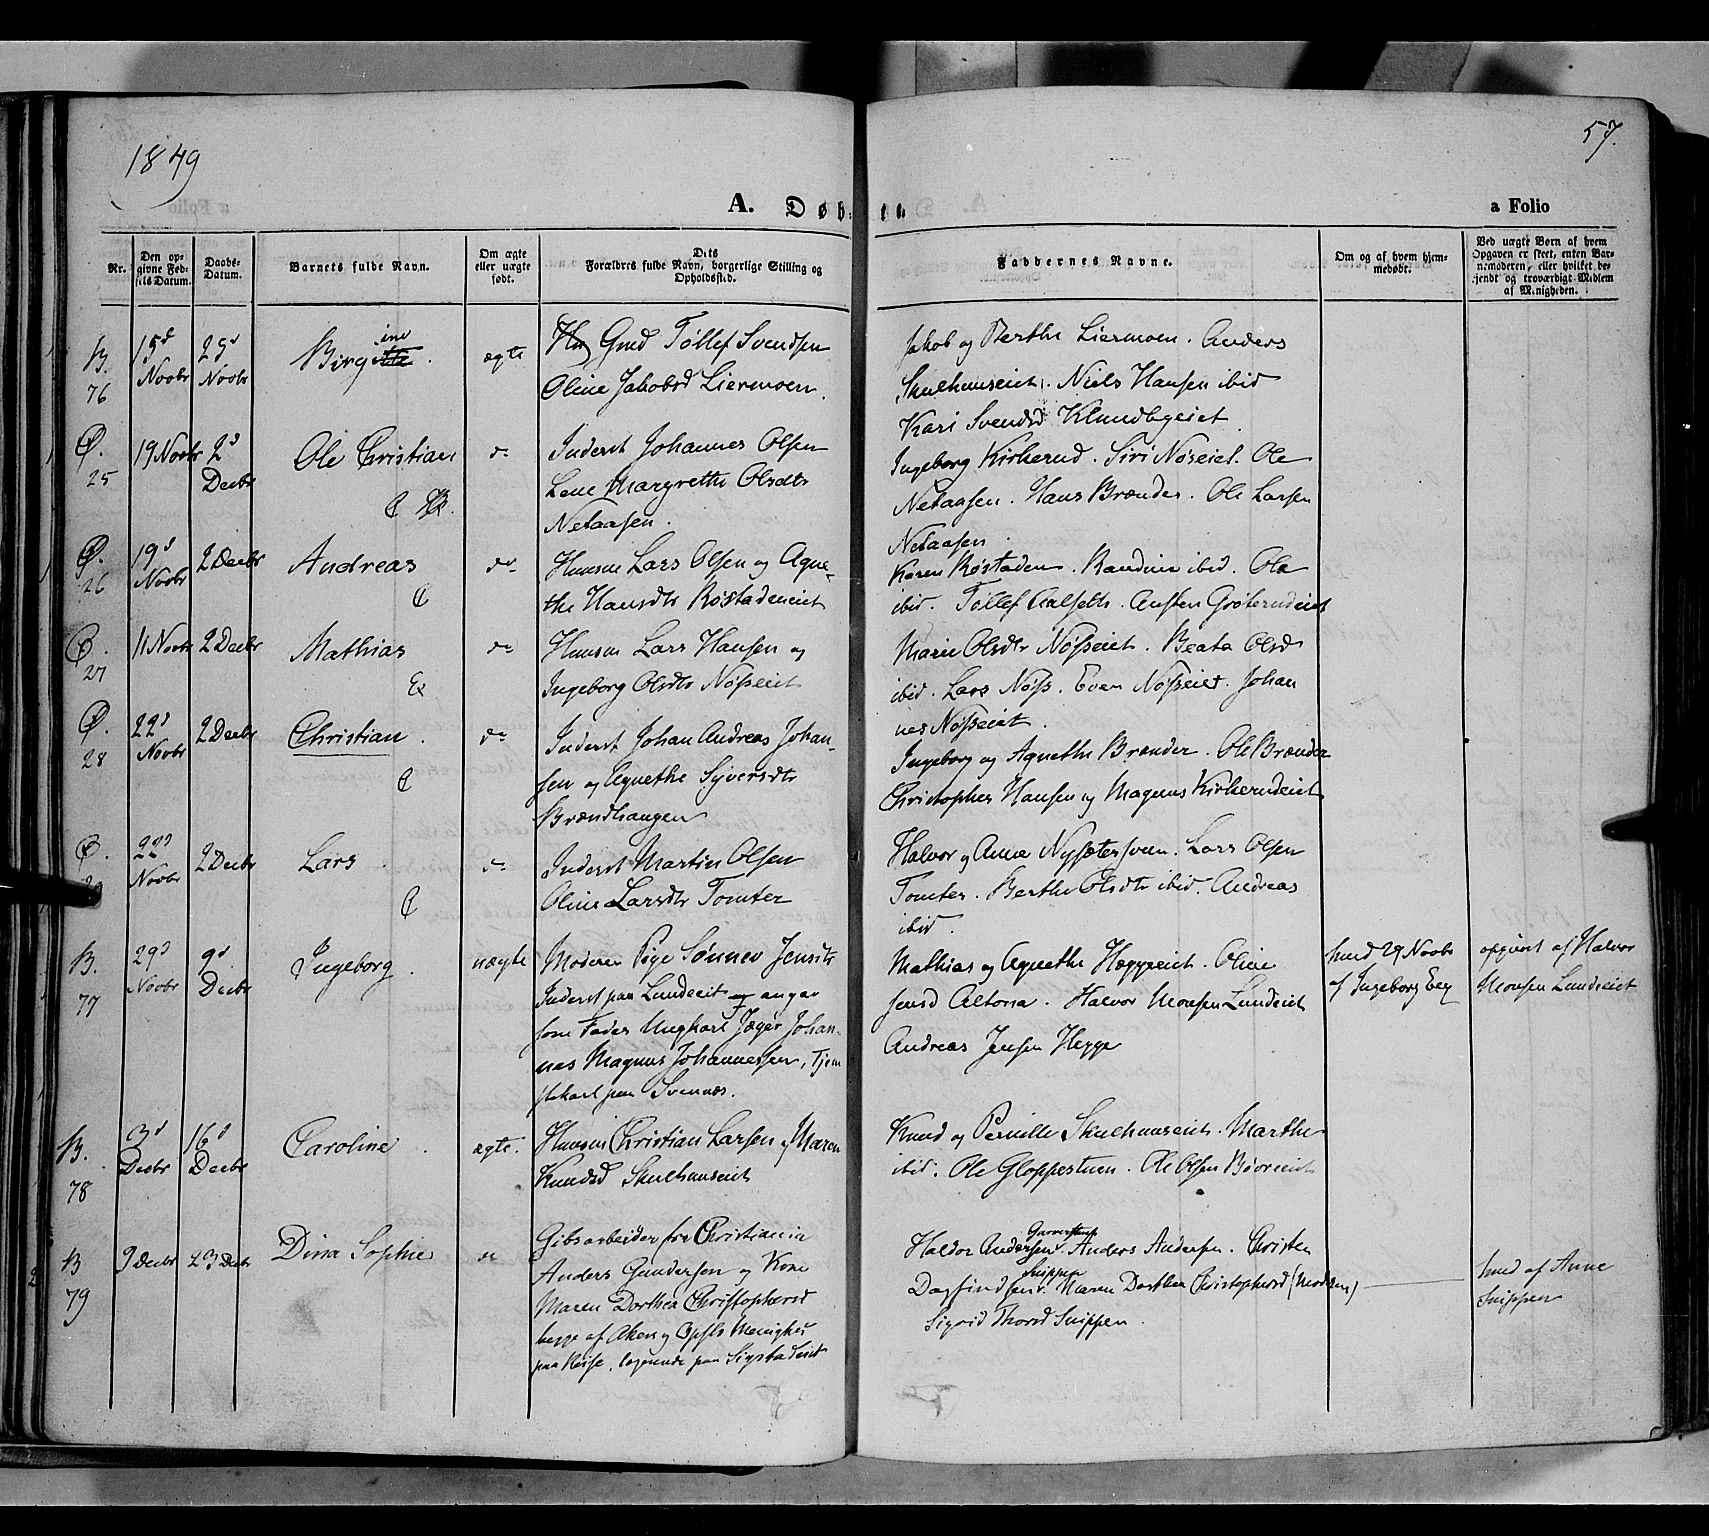 1849
57.
A. Døbte
a Folio
Nr.
Den opgivne Fødsels Datum.
Daabs-Datum.
Barnets fulde Navn.
Om ægte eller uægte født.
Dets Forældres fulde Navn, borgerlige Stilling og Opholdssted.
Faddernes Navne.
Om og af hvem hjemmedøbt.
Ved uægte Børn af hvem Opgaven er skeet, enten Barnemoderen, eller hvilket bekjendt og troværdigt Medlem af Menigheden.
B. 76
15d Novbr
25d Novbr
Birgine
ægte
Gmd Tollef Svendsen
Oline Jakobsd Liermoen.
Jakob og Berthe Liermoen. Anders
Skulhuuseiet. Niels Hansen ibid
Kari Svendsd Klundbyeiet
Ø. 25
19 Novbr
2d Decbr
Ole Christian
do
Inderst Johannes Olsen
Lene Margrethe Olsdtr
Netaasen.
Ingeborg Kirkerud. Siri Nøseiet. Ole
Netaasen. Hans Brænder. Ole Larsen
Netaasen
Ø. 26
19d Novbr
2 Decbr
Andreas
do
Huusm Lars Olsen og Agne-
the Hansdtr Røstadeneiet
Karen Røstaden. Randine ibid. Ole
ibid. Tollef Aalseth. Austen Grøterudeiet
Ø. 27
11 Novbr
2 Decbr
Mathias
do
Huusm Lars Hansen og
Ingeborg Olsdtr Nøsseiet
Marie Olsdtr Nøsseiet. Beata Olsd
ibid. Lars Nøss. Even Nøsseiet. Johan
nes Nøsseiet.
Ø. 28
22d Novbr
2 Decbr
Christian.
do
Inderst Johan Andreas Johan-
sen og Agnethe Syversdtr
Brændhaugen
Ingeborg og Agnethe Brænder. Ole Brænder
Christopher Hansen og Magnus Kirkerudeiet
Ø.
22d Novbr
2 Decbr
Lars
do
Inderst Martin Olsen
Oline Larsdtr Tomter
Halvor og Anne Nysætersveen. Lars Olsen
Tomter. Berthe Olsdtr ibid. Andreas
ibid.
B. 77
29d Novbr
9d Decbr
Ingeborg.
uægte
Moderen Pige Sønnev Jensdtr
Inderst paa Lundeiet og angav
som Fader Ungkarl Jæger Johan-
nes Magnus Johannessen, Tjene
stekarl paa Svennæs.
Mathias og Agnethe Hæggeeiet. Oline
Jensd Altona. Halvor Monsen Lundeiet
Andreas Jensen Hegge
hmd 29 Novbr
af Ingeborg Eeg
opgivet af Halvor
Monsen Lundeiet
B. 78
3d Decbr
16d Decbr
Caroline
ægte.
Huusm Christian Larsen og Maren
Knudsd Skulhuuseiet
Knud og Pernille Skulhuuseiet. Marthe
ibid. Ole Gloppestuen. Ole Olsen Bøvreeiet
B 79
9 Decbr
23 Decbr
Dina Sophie
do
Gibsarbeider fra Christiania
Anders Gundersen og Kone
Maren Dorthea Christophersd
begge af Akers og Opslo Menighed
paa Reise, logerende paa Sigstadeiet
Haldor Andersen Garverstuen Anders Andersen. Christen
Dagfindsen Snippen. Maren Dorthea Christophersd (Modren)
Sigrid Thorsd Snippen.
hmd af Anne
Snippen